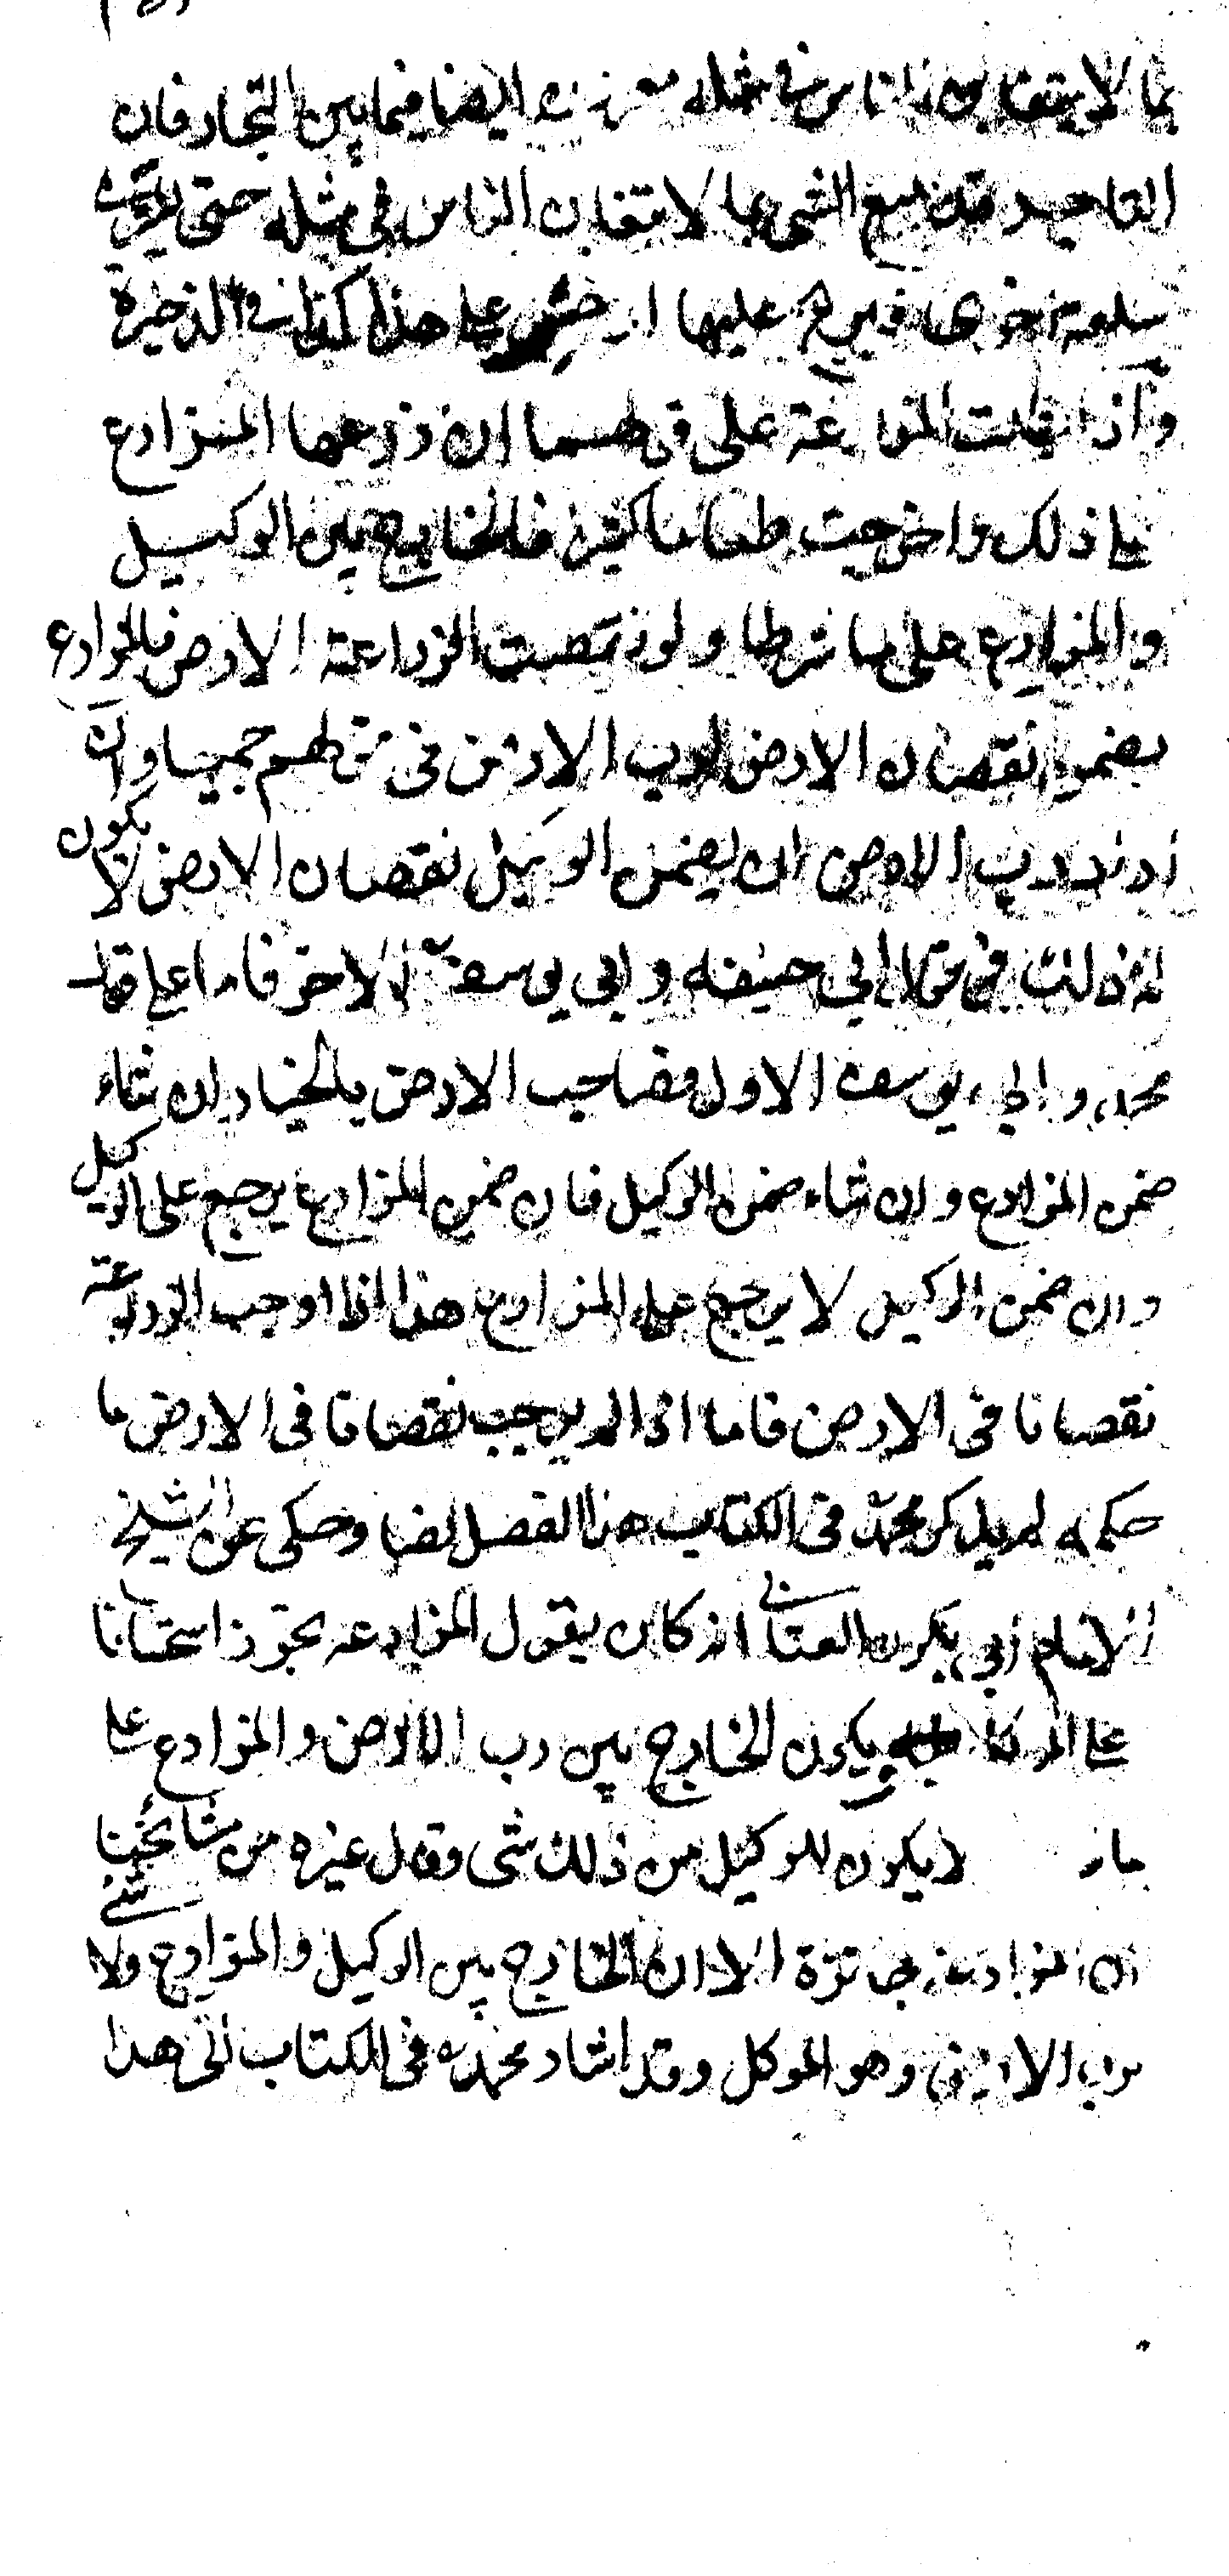 بما لا يتغابن الناس فى مثله متعارف ايضا فيما بين التجار فان
التاجر قد يبيع الشئ بما لا يتغابن الناس فى مثله حتى يشترى
سلعة اخرى فيربح عليها اذ خشى على هذا كذا فى الذخيرة
واذا فسدت المزارعة على قولهما ان زرعها المزارع
على ذلك واخرجت طعاما كثيرا فالخارج بين الوكيل
والمزارع على ما شرطا ولو نقصت الزراعة الارض فالمزارع
يضمن نقصان الارض لرب الارض فى قولهم جميعا وان
اراد رب الارض ان يضمن الوكيل نقصان الارض لا يكون
له ذلك فى قول ابي حنيفه وابي يوسف الاخر فاما على قول
محمد وابي يوسف الاول فصاحب الارض بالخيار ان شاء
ضمن المزارع وان شاء ضمن الوكيل فان ضمن المزارع يرجع على الوكيل
وان ضمن الوكيل لا يرجع على المزارع هذا اذا اوجب الزراعة
نقصانا فى الارض فاما اذا لم يوجب نقصانا فى الارض ما
حكمه لم يذكر محمد فى الكتاب هذا الفصل ايضا وحكى عن الشيخ
الامام ابي بكر العتابى انه كان يقول المزارعه تجوز استحسانا
على الموكل ويكون الخارج بين رب الارض والمزارع على
لا يكون للوكيل من ذلك شى وقال غيره من مشائخنا
ان المزارعة جائزة الا ان الخارج بين الوكيل والمزارع ولا شئ
لرب الارض وهو الموكل وقد اشار محمد فى الكتاب الى هذا